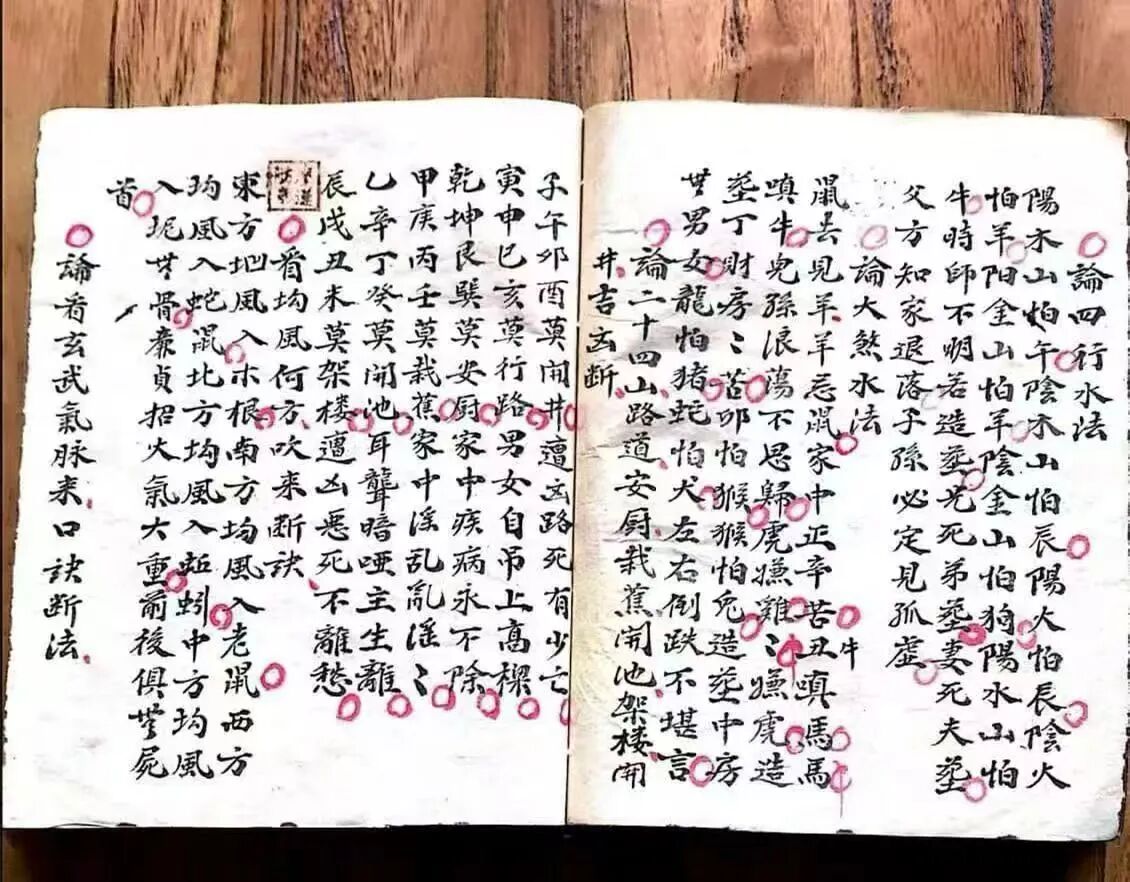 論四行水法
陽木山怕午陰木山怕辰陽火怕辰陰火
怕羊阳金山怕羊陰金山怕狗陽水山怕
牛時師不明若造塟兄死弟塟妻死夫塟
父方知家退落子孫必定見孤虛
論大煞水法
鼠去見羊羊忌鼠家中正辛苦丑嗔馬馬
牛
嗔牛兒孫浪蕩不思歸虎嫌雞〻嫌虎造
塟丁財房〻苦卯怕猴猴怕兎造塟中房
無男女龍怕猪蛇怕犬左右倒跌不堪言
論二十四山路道安厨栽蕉開池架楼開
井吉凶断
子午卯酉莫開井遭凶路死有少亡
寅申巳亥莫行路男女自吊上高樑
乾坤艮巽莫安厨家中疾病永不除
甲庚丙壬莫栽蕉家中淫乱亂淫〻
乙辛丁癸莫開池耳聾暗啞主生離
辰戌丑未莫架楼遭凶惡死不離愁
看坳風何方吹来断訣
東方坳風入木根南方坳風入老鼠西方
坳風入蛇鼠北方坳風入蚯蚓中方坳風
入坭無骨廉貞招火氣大重前後俱無屍
首
論看玄武氣脉来口訣断法